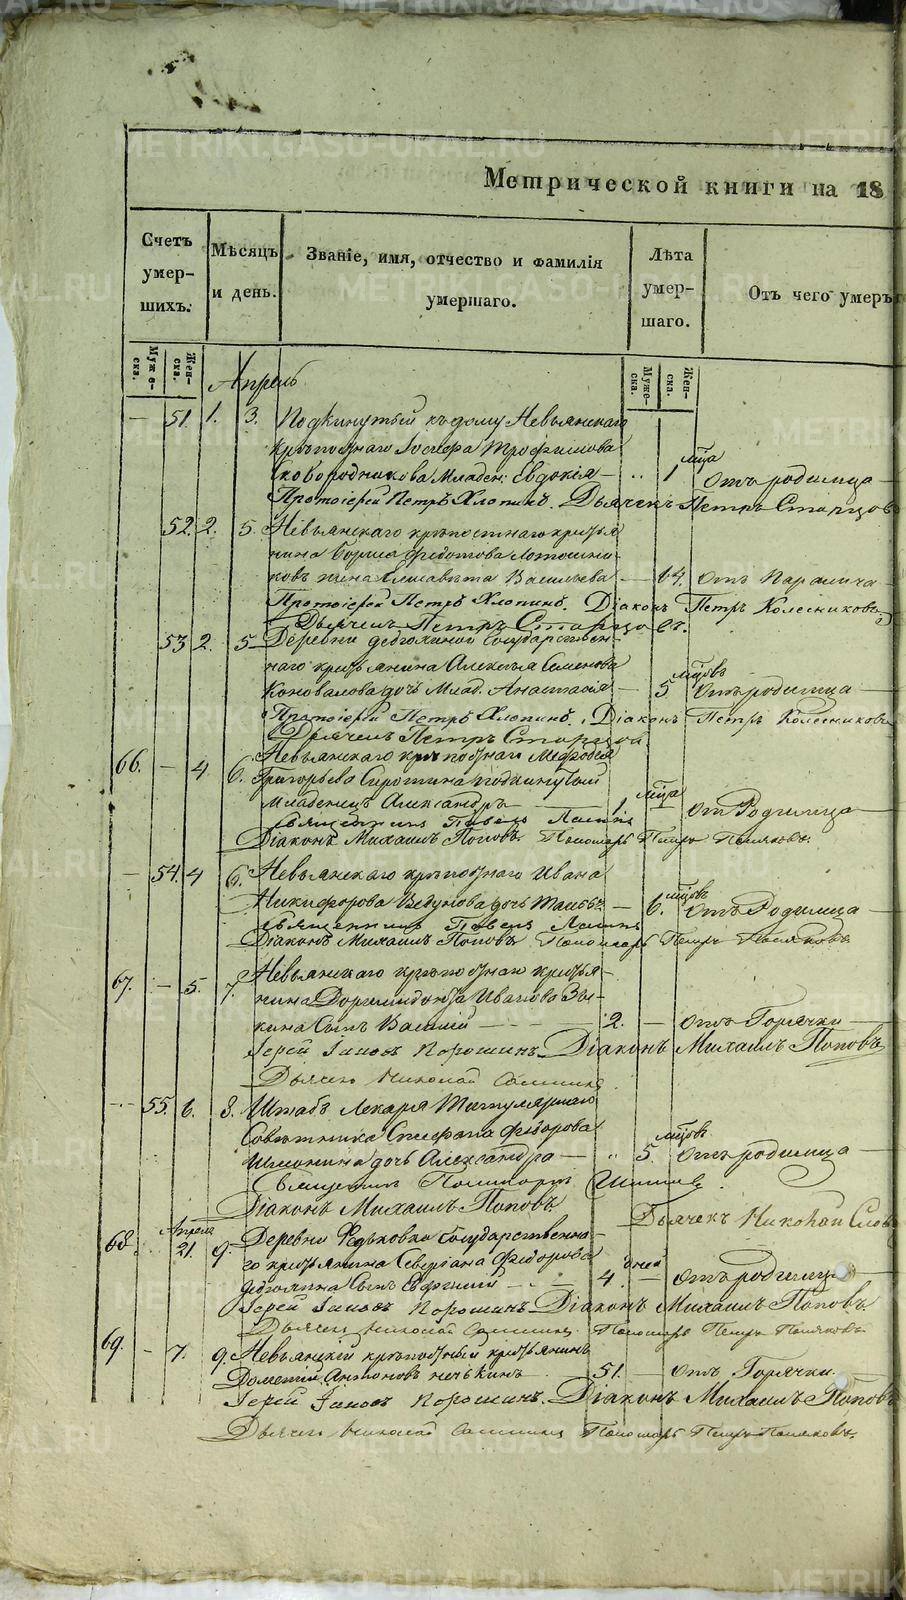 Метрической книги на 18
Счетъ умершихъ.
Мѣсяцъ и день.
Званіе, имя, отчество и фамилія умершаго.
Лѣта умершаго.
Отъ чего умеръ
Мужеска. Женска.
Мужеска. Женска.
Апрель
— 51. 1. 3. Подкинутый къ дому Невьянскаго
крѣпостнаго Іосифа Трофимова
Сковородникова Младен: Евдокія — 1 мѣца Отъ родимца —
Протоіерей Петръ Хлопинъ. Дьячекъ Петръ Старцовъ
52. 2. 5. Невьянскаго крѣпостнаго кресья
нина Бориса Федотова
ковъ жена Елисавета Васильева — 64. Отъ Паралича —
Протоіерей Петръ Хлопинъ. Діаконъ Петръ Колесниковъ
Дьячекъ Петръ Старцовъ.
53 2. 5 Деревни Государствен-
наго кресьянина Алексѣя Семенова
Коновалова дочь Млад. Анастасія — 5 мѣцовъ Отъ родимца —
Протоіерей Петръ Хлопинъ. Діаконъ Петръ Колесниковъ
Дьячекъ Петръ Старцов
66. — 4 6. Невьянскаго крѣпостнаго Мефодія
Григорьева Сиротина подкинутый
Младенецъ Александръ — 1. мѣца — От Родимца —
Священникъ Павелъ
Діаконъ Михаилъ Поповъ. Пономарь Петръ Поляковъ.
— 54. 4 6. Невьянскаго крѣпостнаго Ивана
Никифорова дочь — 6. мѣцовъ Отъ Родимца —
Священникъ Павелъ
Діаконъ Михаилъ Поповъ Пономарь Петръ Поляковъ
67. — 5. 7. Невьянскаго крѣпостнаго кресья-
нина Дормидонта Иванова Зы-
кина Сынъ Василій — 2. — Отъ Горячки —
Іерей Іаковъ Порошинъ. Діаконъ Михаилъ Поповъ
Дьячекъ Николай
— 55. 6. 8. Штабъ Лекаря Титулярнаго
Совѣтника Стефана Федорова
дочь Александра — 5. мѣцовъ Отъ родимца —
Священникъ
Діаконъ Михаилъ Поповъ
Дьячекъ Николай
68. Апреля 21. 9. Деревни Федьковки Государственна-
го кресьянина Северіана Федорова
Сынъ — 4. дней — Отъ родимца —
Іерей Іаковъ Порошинъ Діаконъ Михаилъ Поповъ
Дьячекъ Николай Пономарь Петръ Поляковъ
69. — 7. 9. Невьянскій крѣпостный кресьянинъ
Дометій Антоновъ — 51. — Отъ Горячки.
Іерей Іаковъ Порошинъ. Діаконъ Михаилъ Поповъ
Дьячекъ Николай Пономарь Петръ Поляковъ.
METRIKI.GASO-URAL.RU